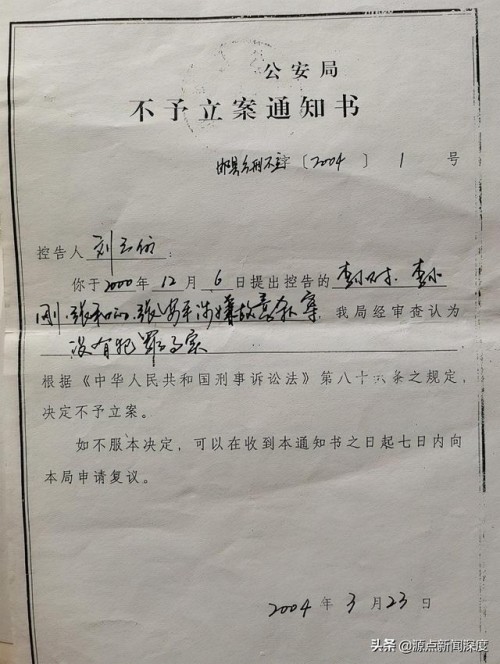 公安局
不予立案通知书
公刑不立字〔2004〕1号
控告人刘:
你于2000年12月6日提出控告的李小
刚、张、张平涉嫌故意杀 我局经审查认为
没有犯罪事实
根据《中华人民共和国刑事诉讼法》第八十六条之规定,
决定不予立案。
如不服本决定,可以在收到本通知书之日起七日内向
本局申请复议。
2004年3月23日
头条@源点新闻深度